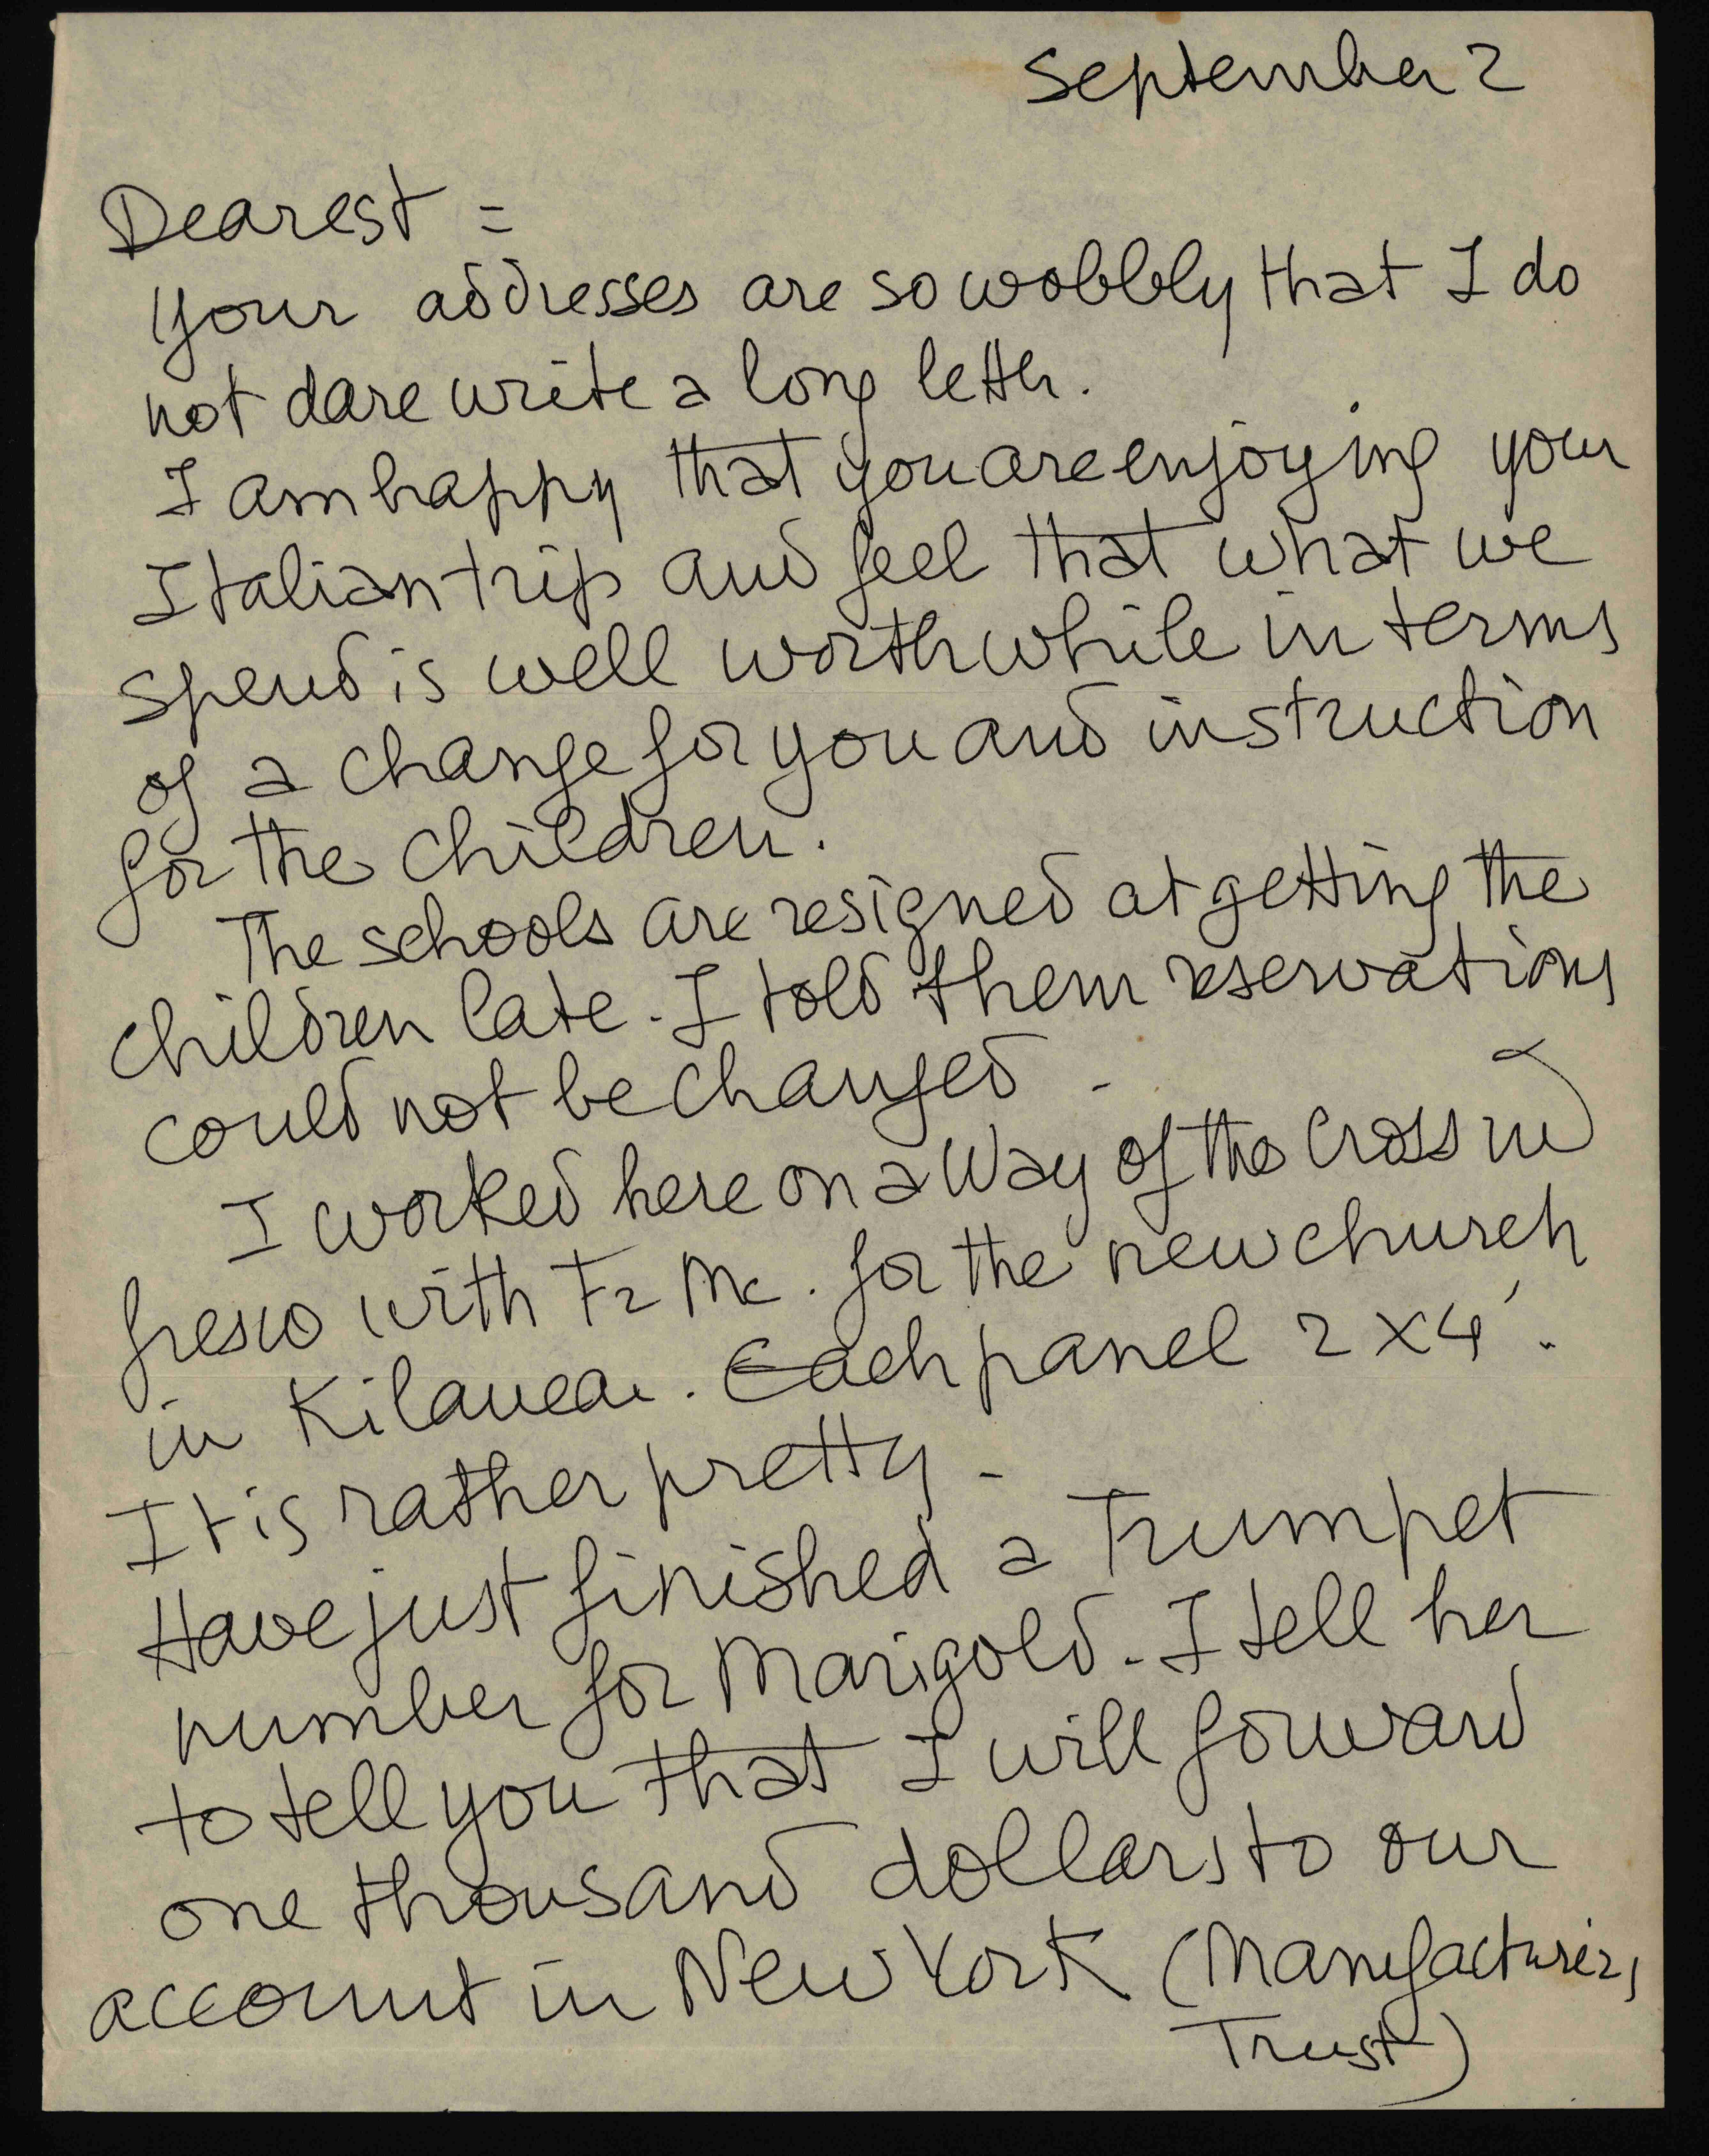 September 2
Dearest =
your addresses are so wobbly that I do
not dare write a long letter.
I am happy that you are enjoying your
Italian trip and feel that what we
spend is well worth while in terms
of a change for you and instruction
for the children.
The schools are resigned at getting the
children late. I told them reservations
could not be changed -
I worked here on a Way of the Cross in
fresco with Fr Mc. for the new church
in Kilauea. Each panel 2 x 4'.
It is rather pretty -
Have just finished a Trumpet
number for Marigold. I tell her
to tell you that I will forward
one thousand dollars to our
account in New York (Manufacturers
Trust)